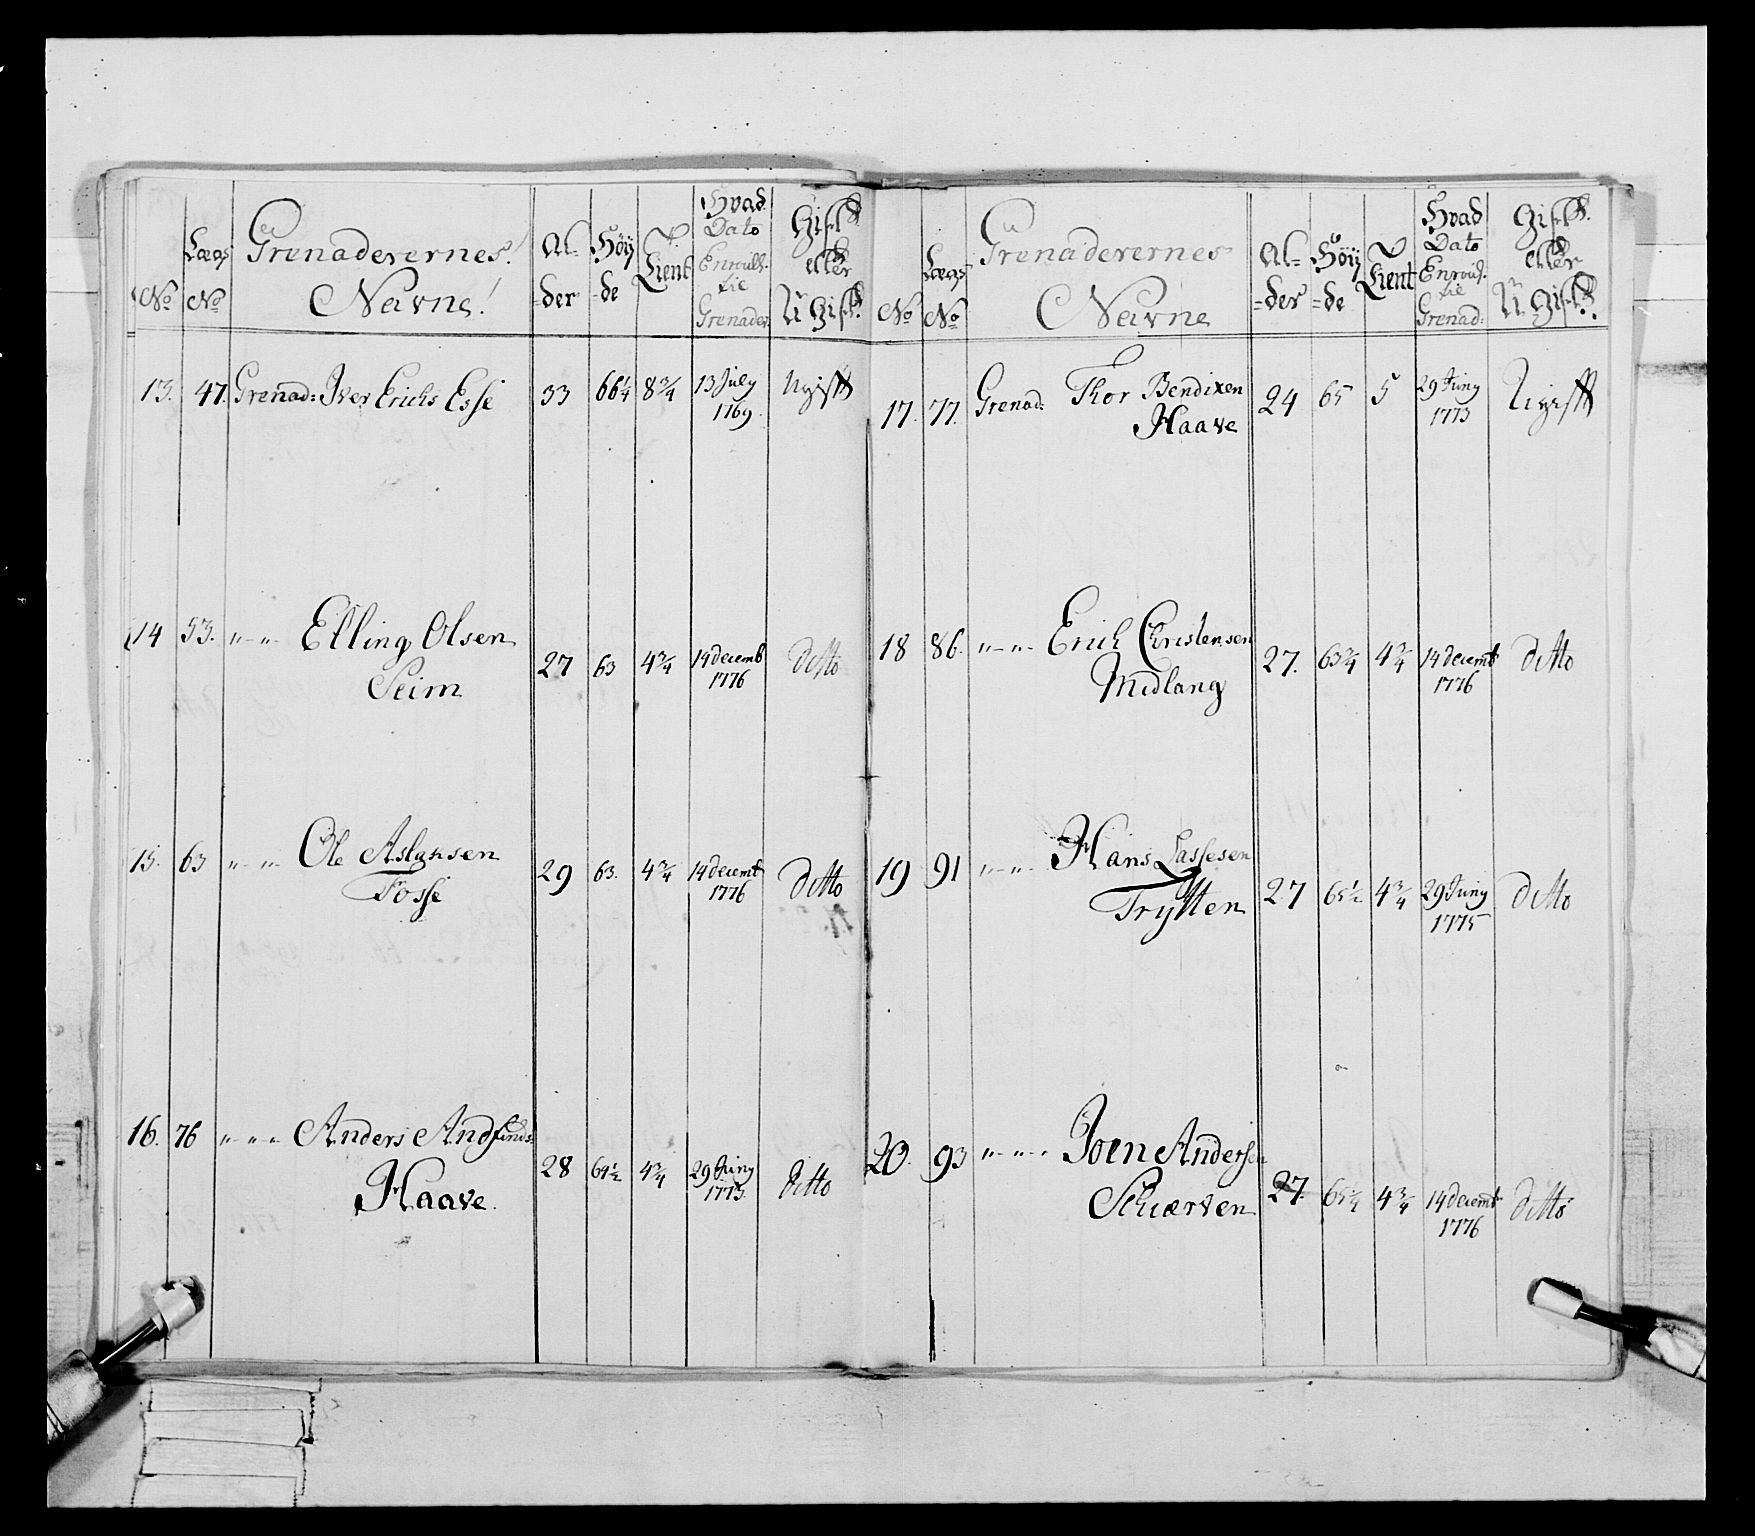 No | Lægs No | Grenaderernes Navne | Al-der | Höy-de | Tient | Hvad Dato Enroull. tie Grenader | Gift eller U Gift
13. | 47. | Grenad: Iver Erichs Esse | 33 | 66 1/4 | 8 3/4 | 13 July 1769 | Ugift
14 | 53. | " " Elling Olsen Seim | 27 | 63 | 4 3/4 | 14 decemb 1776 | ditto
15. | 63 | " " Ole Aslachsen Fosse | 29 | 63. | 4 3/4 | 14 decemb 1776 | ditto
16. | 76 | " " " Anders Andfinds: Haave. | 28 | 64 1/2 | 4 3/4 | 29 Juny 1775 | ditto
No | Lægs No | Grenaderernes Navne | Al-der | Höy-de | Tient | Hvad Dato Enroul. tie Grenad: | Gift. eller U Gift.
17. | 77. | Grenad: Thor Bendixen Haave | 24 | 65 | 5 | 29 Juny 1773 | Ugift
18 | 86. | " " Erich Christensen Midlang | 27. | 63 3/4 | 4 3/4 | 14 decemb 1776 | ditto
19 | 91 | " " Hans Lassesen Trytten | 27 | 65 1/2 | 4 3/4 | 29 Juny 1775 | ditto
20. | 93 | " " " Joen Andersen Schierven | 27. | 65 1/2 | 4 3/4 | 14 decemb 1776 | ditto